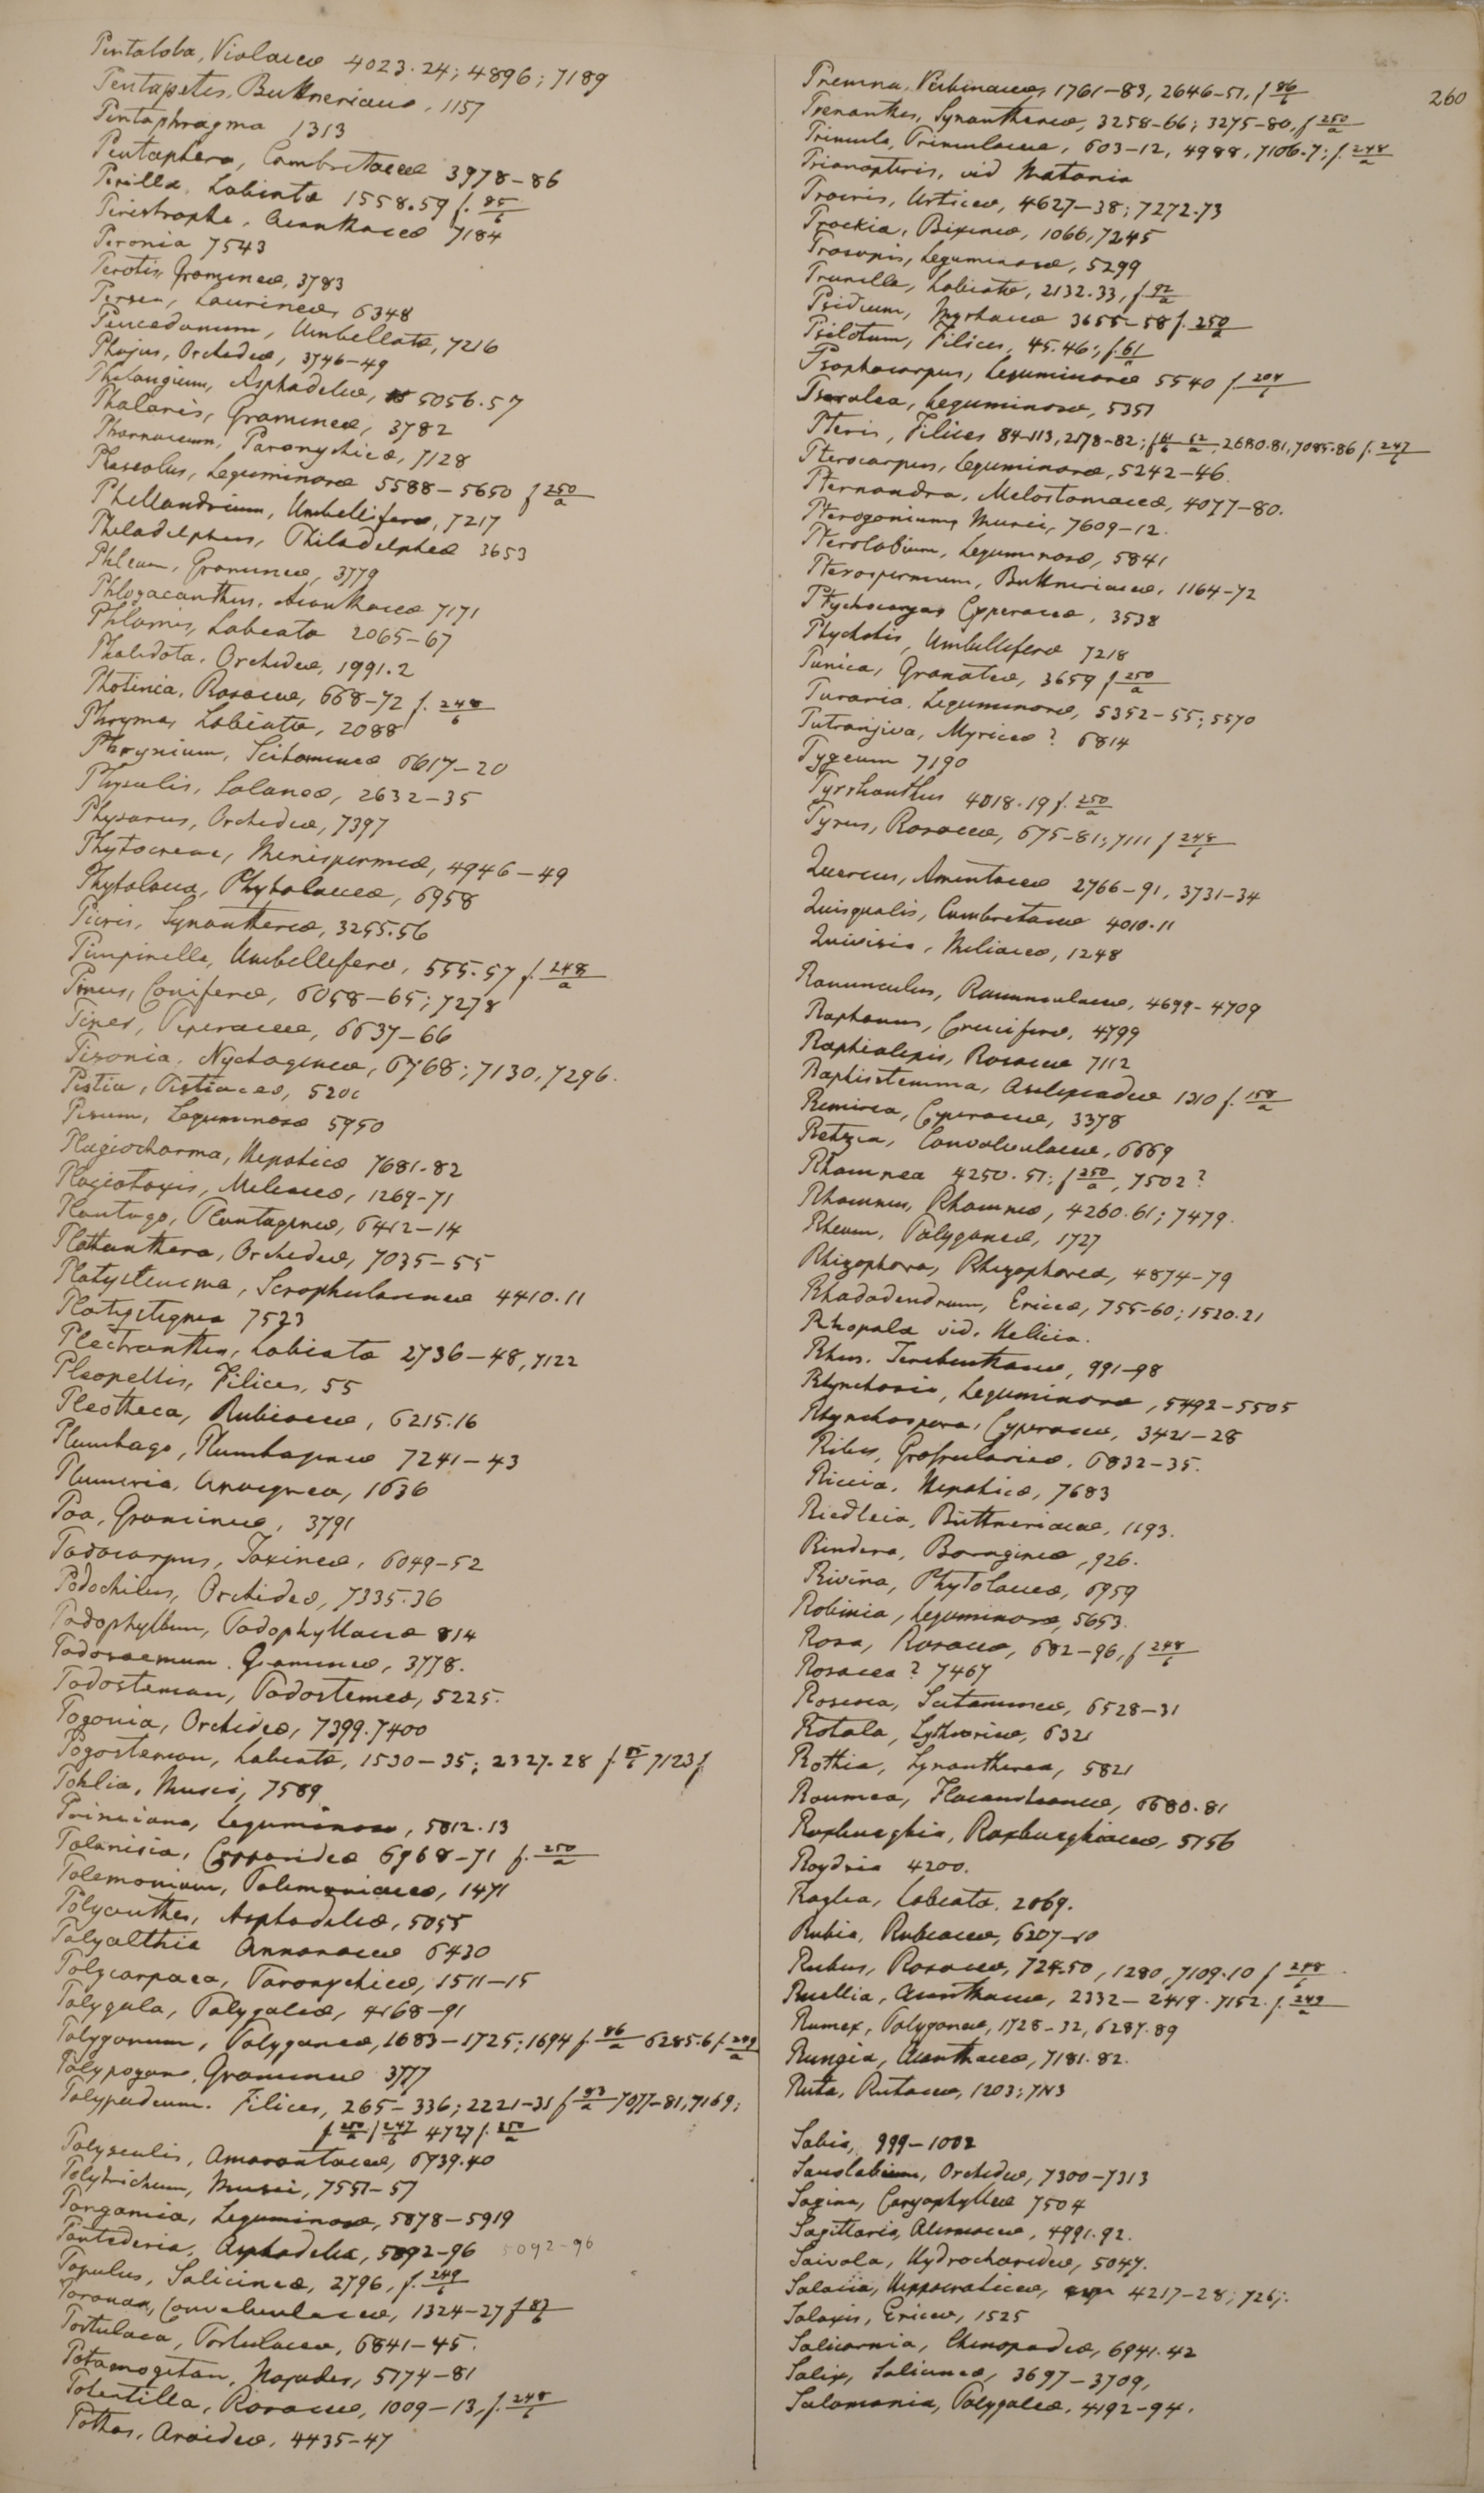 Pentaloba, Violaceæ 4023.24; 4896; 7189
Pentapetes, Buttneriaceæ, 1157
Pentaphragma 1313
Pentaptera, Combretaceæ 3978-86
Perilla, Labiatæ 1558.59 f. 85/b
Peristrophe, Acanthaceæ 7184
Peronia 7543
Perotis, Gramineæ, 3783
Persea, Laurineæ, 6348
Peucedanum, Umbellatæ, 7216
Phajus, Orchideæ, 3746-49
Phalangium, Asphodeleæ, 5056.57
Phalaris, Gramineæ, 3782
Pharnaceum, Paronychieæ, 7128
Phaseolus, Leguminosæ 5588-5650 f 250/a
Phellandrium, Umbelliferæ, 7217
Philadelphus, Philadelpheæ 3653
Phleum, Gramineæ, 3779
Phlogacanthus, Acanthaceæ 7171
Phlomis, Labiatæ 2065-67
Pholidota, Orchideæ, 1991.2
Photinia, Rosaceæ, 668-72 f. 248/b
Phryma, Labiatæ, 2088
Phrynium, Scitamineæ 6617-20
Physalis, Solaneæ, 2632-35
Physurus, Orchideæ, 7397
Phytocrene, Menispermeæ, 4946-49
Phytolacca, Phytolacceæ, 6958
Picris, Synanthereæ, 3255.56
Pimpinella, Umbelliferæ, 555.57 f. 248/a
Pinus, Coniferæ, 6058-65; 7278
Piper, Piperaceæ, 6637-66
Pisonia, Nyctagineæ, 6768; 7130, 7296.
Pistia, Pistiaceæ, 520
Pisum, Leguminosæ 5950
Plagiocharma, Hepaticæ 7681.82
Plagiotaxis, Meliaceæ, 1269-71
Plantago, Plantagineæ, 6412-14
Platanthera, Orchideæ, 7035-55
Platystemma, Scrophularineæ 4410.11
Platystigma 7523
Plectranthus, Labiatæ 2736-48, 7122
Pleopeltis, Filices, 55
Pleotheca, Rubiaceæ, 6215.16
Plumbago, Plumbagineæ 7241-43
Plumeria, Apocyneæ, 1636
Poa, Gramineæ, 3791
Podocarpus, Taxineæ, 6049-52
Podochilus, Orchideæ, 7335.36
Podophyllum, Podophyllaceæ 814
Podosaemum, Gramineæ, 3778.
Podostemon, Podostemeæ, 5225.
Pogonia, Orchideæ, 7399.7400
Pogostemon, Labiatæ, 1530-35; 2327.28 f. 85/b 7123 f
Pohlia, Musci, 7589
Poinciana, Leguminosæ, 5812.13
Polanisia, Capparideæ 6968-71 f. 250/a
Polemonium, Polemoniaceæ, 1471
Polyanthes, Asphodeleæ, 5055
Polyalthia Annonaceæ 6430
Polycarpaea, Paronychieæ, 1511-15
Polygala, Polygaleæ, 4168-91
Polygonum, Polygoneæ, 1683-1725; 1694 f. 86/a 6285.6 f. 249/a
Polypogon, Gramineæ 3777
Polypodium. Filices, 265-336; 2221-35 f 93/a 7077-81, 7169;
f 250/a f 247/b 4727 f. 250/a
Polyscalis, Amarantaceæ, 6939.40
Polytrichum, Musci, 7551-57
Pongamia, Leguminosæ, 5878-5919
Pontederia, Asphodeleæ, 5092-96 5092-96
Populus, Salicineæ, 2796, f. 249/b
Porana, Convolvulaceæ, 1324-27 f 87/b
Portulaca, Portulaceæ, 6841-45.
Potamogeton, Najades, 5174-81
Potentilla, Rosaceæ, 1009-13, f. 248/b
Pothos, Aroideæ, 4435-47
260
Premna, Verbenaceæ, 1761-83, 2646-51, f 86/b
Prenanthes, Synanthereæ, 3258-66; 3275-80, f 250/a
Primula, Primulaceæ, 603-12, 4988, 7106.7; f. 248/a
Prionopteris, vid Matonia
Procris, Urticeæ, 4627-38; 7272.73
Prockia, Bixineæ, 1066, 7245
Prosopis, Leguminosæ, 5299
Prunella, Labiatæ, 2132.33, f 92/a
Psidium, Myrtaceæ 3655-58 f. 250/a
Psilotum, Filices, 45.46; f. 61/a
Psophocarpus, Leguminosæ 5540 f. 204/b
Psoralea, Leguminosæ, 5351
Pteris, Filices 84-113, 2178-82; f 61/b 62/a, 2680.81, 7085.86 f. 247/b
Pterocarpus, Leguminosæ, 5242-46.
Pternandra, Melastomaceæ, 4077-80.
Pterogonium, Musci, 7609-12.
Pterolobium, Leguminosæ, 5841
Pterospermum, Buttneriaceæ, 1164-72
Ptychocarya, Cyperaceæ, 3538
Ptychotis, Umbelliferæ 7218
Punica, Granateæ, 3659 f 250/a
Puraria, Leguminosæ, 5352-55; 5570
Putranjiva, Myriceæ? 6814
Pygeum 7190
Pyrrhanthus 4018.19 f. 250/a
Pyrus, Rosaceæ, 675-81; 7111 f 248/b
Quercus, Amentaceæ 2766-91, 3731-34
Quisqualis, Combretaceæ 4010.11
Quivisia, Meliaceæ, 1248
Ranunculus, Ranunculaceæ, 4699-4709
Raphanus, Cruciferæ, 4799
Raphiolepis, Rosaceæ 7112
Raphistemma, Asclepiadeæ 1310 f. 158/a
Remirea, Cyperaceæ, 3378
Retzia, Convolvulaceæ, 6669
Rhamnea 4250.51; f 250/a, 7502?
Rhamnus, Rhamneæ, 4260.61; 7479.
Rheum, Polygoneæ, 1727
Rhizophora, Rhizophoreæ, 4874-79
Rhododendrum, Ericeæ, 755-60; 1520.21
Rhopala vid. Helicia.
Rhus, Terebinthaceæ, 991-98
Rhynchosia, Leguminosæ, 5492-5505
Rhynchospora, Cyperaceæ, 3421-28
Ribes, Grossularieæ, 6832-35.
Riccia, Hepaticæ, 7683
Riedleia, Büttneriaceæ, 1193.
Rindera, Boragineæ, 926.
Rivina, Phytolacceæ, 6959
Robinia, Leguminosæ, 5653.
Rosa, Rosaceæ, 682-96, f 248/b
Rosacea? 7467
Roscoea, Scitamineæ, 6528-31
Rotala, Lythrarieæ, 6321
Rothia, Synanthereæ, 5821
Roumea, Flacourtianeæ, 6680.81
Roxburghia, Roxburghiaceæ, 5156
Roydsia 4200.
Roylea, Labiatæ, 2069.
Rubia, Rubiaceæ, 6207-10
Rubus, Rosaceæ, 724-50, 1280, 7109.10 f 248/b
Ruellia, Acanthaceæ, 2332-2419. 7152. f. 249/a
Rumex, Polygoneæ, 1728-32, 6287.89
Rungia, Acanthaceæ, 7181.82.
Ruta, Rutaceæ, 1203; 7113
Sabia, 999-1002
Saccolabium, Orchideæ, 7300-7313
Sagina, Caryophylleæ 7504
Sagittaria, Alismaceæ, 4991.92.
Saivala, Hydrocharideæ, 5047.
Salacia, Hippocraticeæ, 4217-28; 726;.
Salaxis, Ericeæ, 1525
Salicornia, Chenopodeæ, 6941.42
Salix, Salicineæ, 3697-3709,
Salomonia, Polygaleæ, 4192-94.